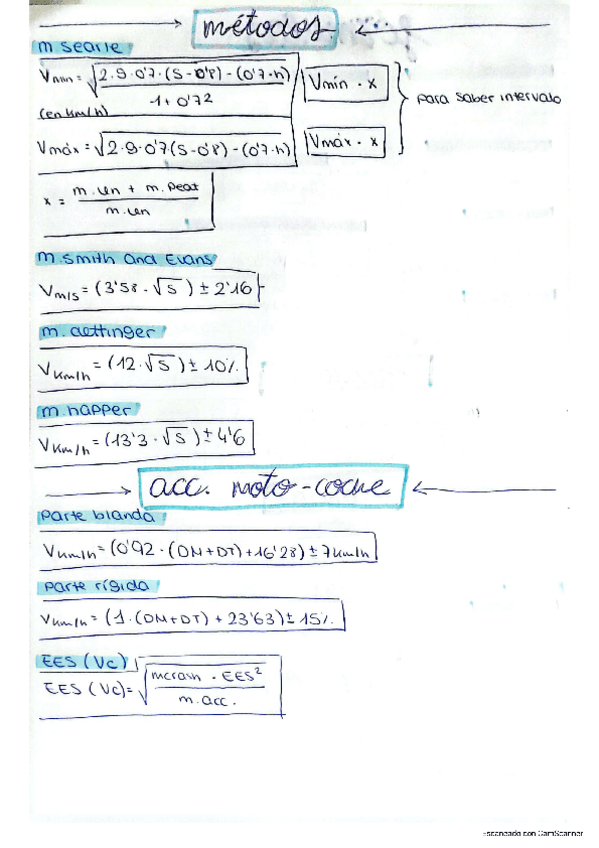 métodos
m searle
Vmin = √2·9·0'7·(S-0'8)-(0'7·h) / 1+0'7² Vmín · x
(en km/h) para saber intervalo
Vmáx = √2·9·0'7(S-0'8)-(0'7·h) Vmáx · x
x = m.ven + m.peat / m.ven
m.smith and Evans
Vm/s = (3'58·√S) ± 2'16
m. aettinger
VKm/h = (12·√S) ± 10%
m happer
VKm/h = (13'3·√S) ± 4'6
acc. moto-coche
parte blanda
VKm/h = (0'92·(DM+DT)+16'28) ± 7Km/h
parte rígida
VKm/h = (1·(DM+DT)+23'63) ± 15%
EES (Vc)
EES (Vc) = √mcrash · EES² / m.acc.
Escaneado con CamScanner